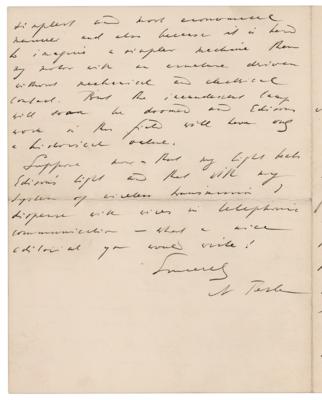 simplest and most economical
manner and also because it is hard
to imagine a simpler machine than
my motor with an armature driven
without mechanical and electrical
contact. But the incandescent lamp
will soon be doomed and Edison's
work in this field will have only
a historical value.
Suppose now that my light beats
Edison's light and that with my
system of wireless transmission I
dispense with wires in telephonic
communication — what a nice
editorial you would write!
Sincerely
N Tesla